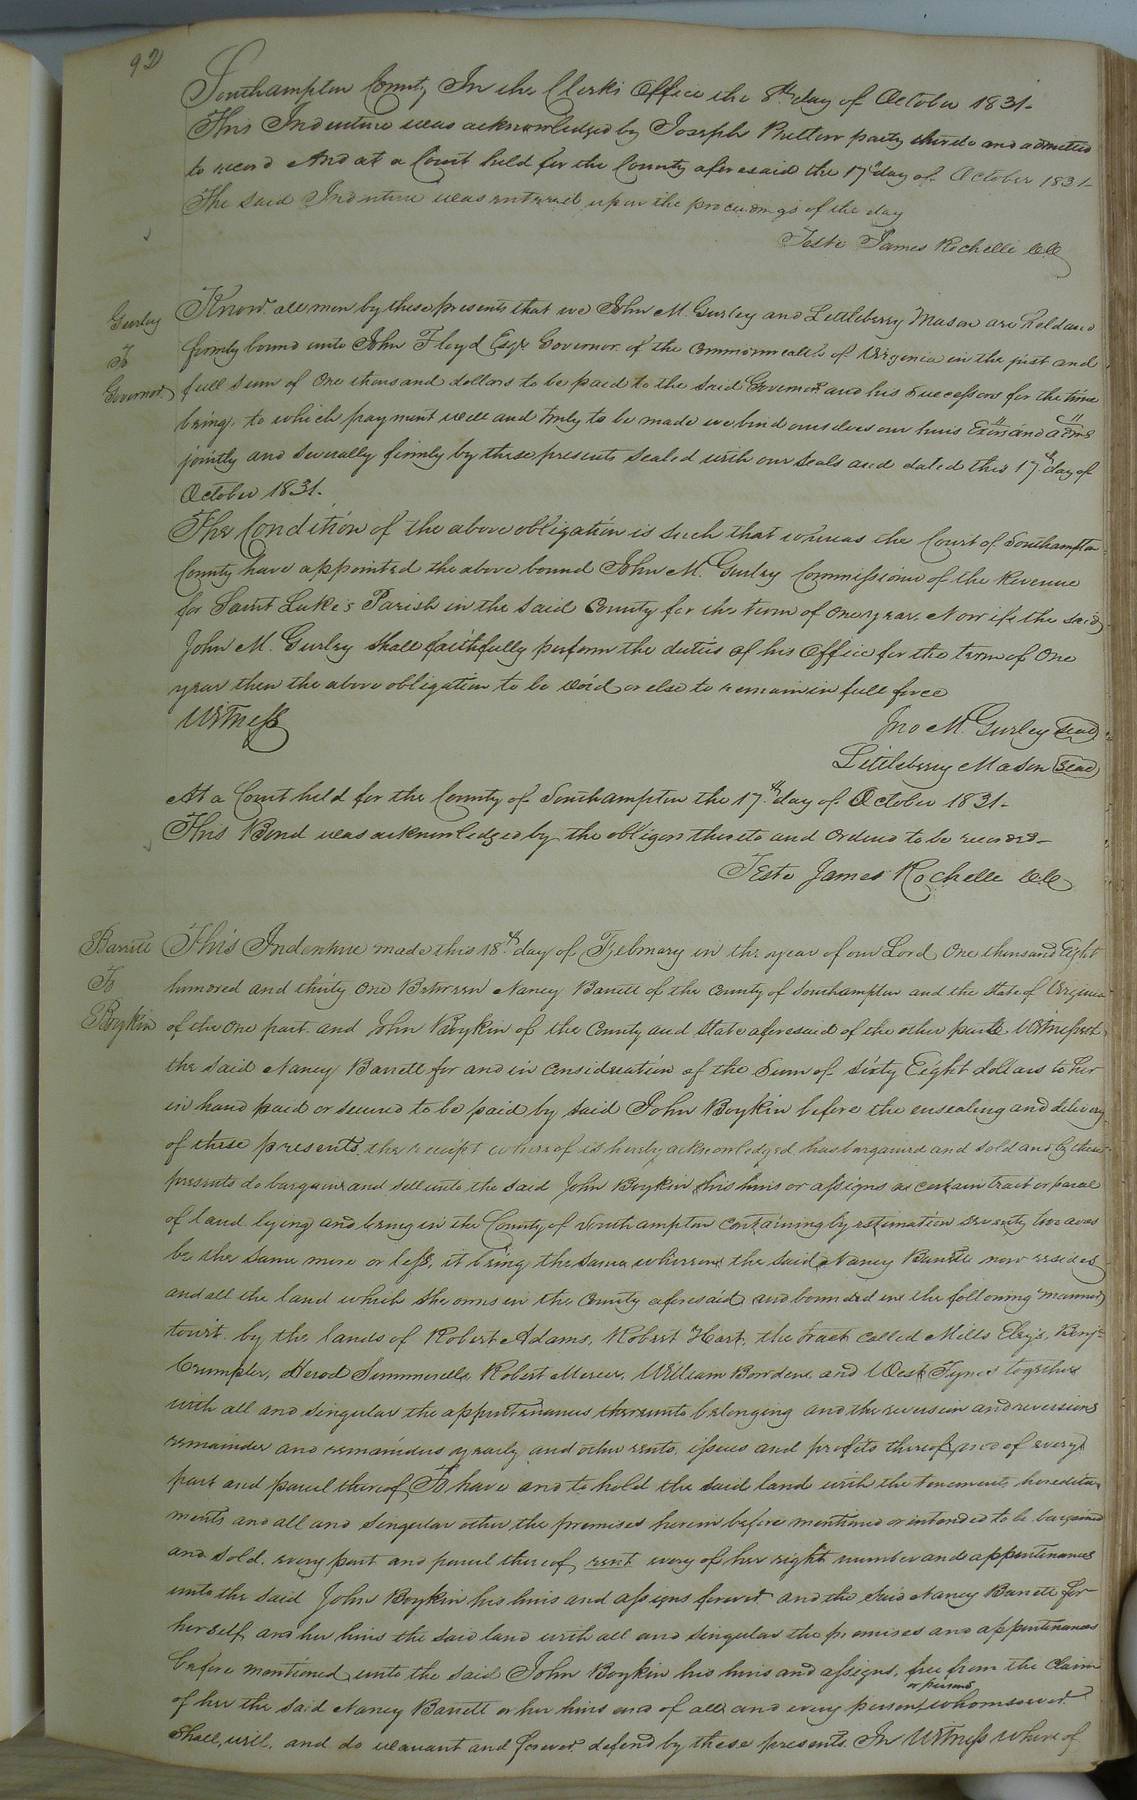 92
Southampton County In the Clerks Office the 8th day of October 1831-
This Indenture was acknowledged by Joseph Pretlow party thereto and admitted
to record And at a Court held for the County aforesaid the 17th day of October 1831-
The said Indenture was entered upon the proceedings of the day
Teste James Rochelle CC
Gurley
To
Governor
Know all men by these presents that we John M. Gurley and Littleberry Mason are held and
firmly bound unto John Floyd Esqr Governor of the Commonwealth of Virginia in the just and
full sum of One thousand dollars to be paid to the said Governor and his successors for the time
being, to which payment well and truly to be made we bind ourselves our heirs Exors and adms
jointly and severally firmly by these presents sealed with our seals and dated this 17th day of
October 1831-
The Condition of the above obligation is such that whereas the Court of Southampton
County have appointed the above bound John M. Gurley Commissioner of the Revenue
for Saint Luke's Parish in the said County for the term of one year. Now if the said
John M. Gurley shall faithfully perform the duties of his Office for the term of One
year then the above obligation to be void or else to remain in full force
Witness
Jno M. Gurley Seal
Littleberry Mason Seal
At a Court held for the County of Southampton the 17th day of October 1831-
This Bond was acknowledged by the obligors thereto and Ordered to be record-
Teste James Rochelle CC
Barrett
To
Boykin
This Indenture made this 18th day of February in the year of our Lord One thousand Eight
hundred and thirty One Between Nancy Barrett of the County of Southampton and the State of Virginia
of the One part and John Boykin of the County and State aforesaid of the other parte Witnesseth
the said Nancy Barrett for and in consideration of the Sum of sixty Eight dollars to her
in hand paid or secured to be paid by said John Boykin before the ensealing and delivery
of these presents the receipt whereof is hereby acknowledged, has bargained and sold and by these
presents do bargain and sell unto the said John Boykin his heirs or assigns a certain tract or parcel
of land lying and being in the County of Southampton containing by estimation seventy two acres
be the same more or less, it being the same whereon the said Nancy Barrett now resides
and all the land which she owns in the County aforesaid and bounded in the following manner
towit. by the lands of Robert Adams, Robert Hart, the tract called Mills Eley's, Benjn
Crumpler, Herod Summerells, Robert Mercer, William Bowden, and West Tynes together
with all and singular the appurtenances thereunto belonging and the reversion and reversions
remainder and remainders yearly and other rents, issues and profits thereof, and of every
part and parcel thereof To have and to hold the said land with the tenements heredita-
ments and all and singular other the premises herein before mentioned or intended to be bargained
and sold, every part and parcel thereof rent every of her right number and appurtenances
unto the said John Boykin his heirs and assigns forever and the said Nancy Barrett for
herself and her heirs the said land with all and singular the premises and appurtenances
before mentioned unto the said John Boykin his heirs and assigns, free from the claim
of her the said Nancy Barrett or her heirs and of all and every person or persons whomsoever
shall, will, and do warrant and forever defend by these presents. In Witness whereof